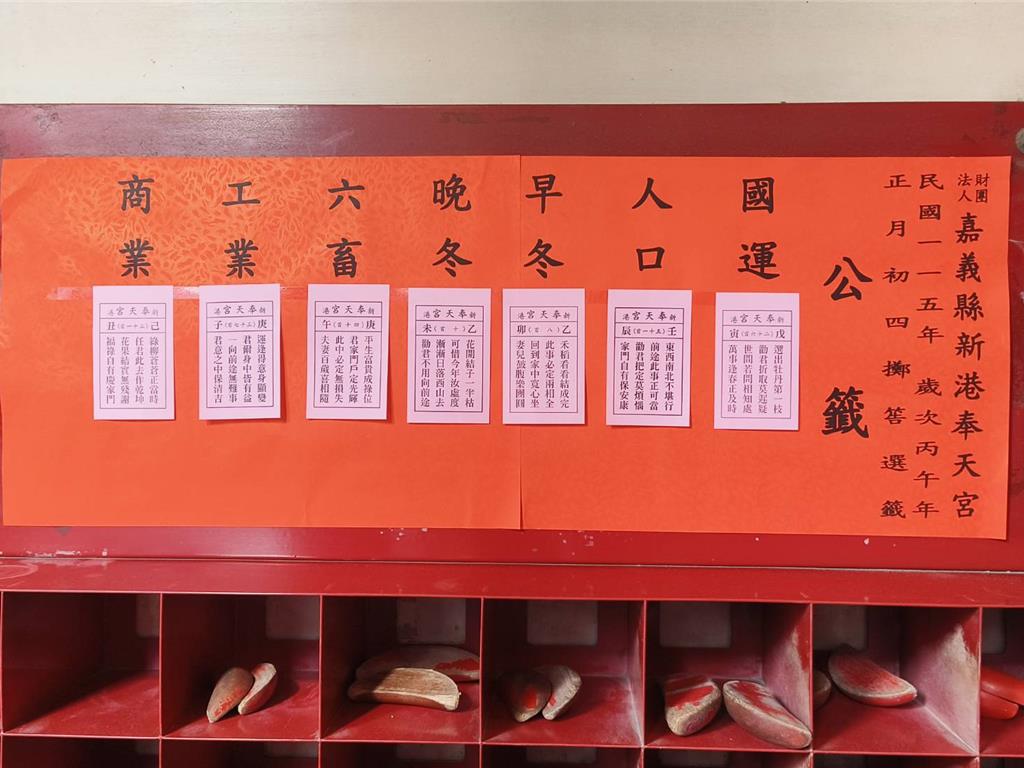 財團
法人
嘉義縣新港奉天宮
民國一一五年 歲次丙午年
正月初四擲筶選籤
公籤
國運
新港奉天宮
戊寅(二十六首)
選出牡丹第一枝
勸君折取莫遲疑
世間若問相知處
萬事逢春正及時
人口
新港奉天宮
壬辰(五十一首)
東西南北不堪行
前途此事正可當
勸君把定莫煩惱
家門自有保安康
早冬
新港奉天宮
乙卯(八首)
禾稻看看結成完
此事必定兩相全
回到家中寬心坐
妻兒鼓腹樂團圓
晚冬
新港奉天宮
乙未(十首)
花開結子一半枯
可惜今年汝虛度
漸漸日落西山去
勸君不用向前途
六畜
新港奉天宮
庚午(四十首)
平生富貴成祿位
君家門戶定光輝
此中必定無損失
夫妻百歲喜相隨
工業
新港奉天宮
庚子(三十七首)
運逢得意身顯變
君爾身中皆有益
一向前途無難事
君意之中保清吉
商業
新港奉天宮
己丑(三十一首)
綠柳蒼蒼正當時
任君此去作乾坤
花果結實無殘謝
福祿自有慶家門